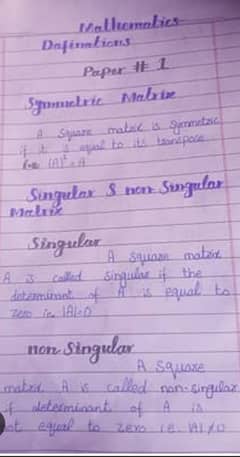 Mathematics
Definations
Paper # 1
Symmetric Matrix
A square matrix is symmetric
if it is equal to its transpose
i.e (A)ᵗ = A
Singular & non Singular
Matrix
Singular
A square matrix
A is called singular if the
determinant of A is equal to
zero i.e. |A|=0
non-Singular
A square
matrix A is called non-singular
if determinant of A is
not equal to zero i.e |A|≠0